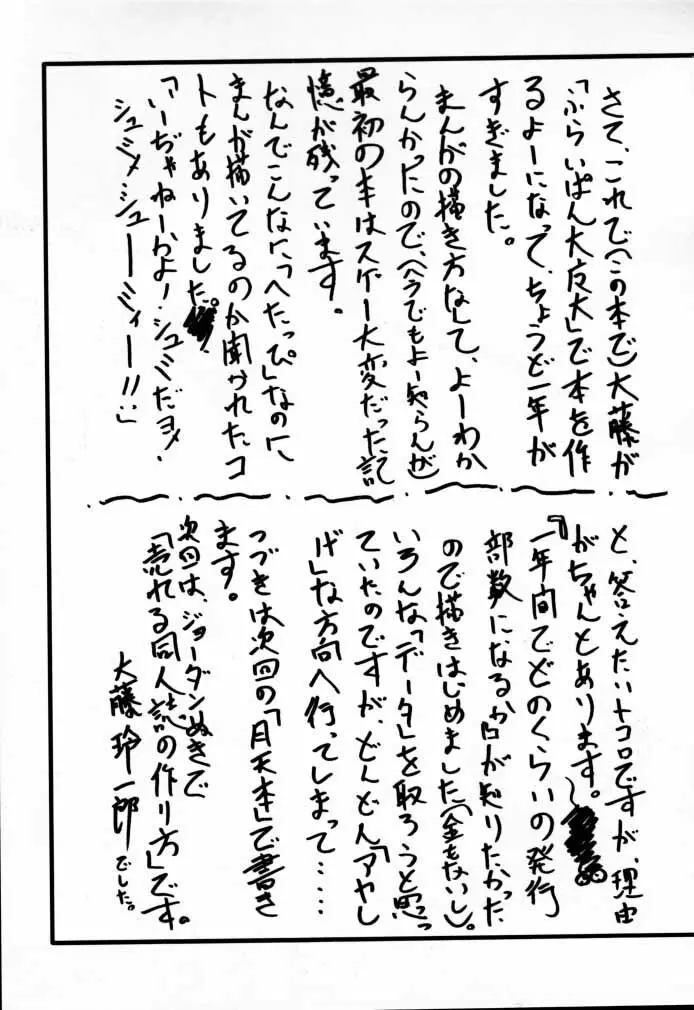 さて、これで(この本で)大藤が
「ふらいぱん大友大」で本を作
るよーになって、ちょうど一年が
すぎました。
まんがの描き方なして、よーわか
らんかったので、(今でもよー知らんが)
最初の本はスゲー大変だった記
憶が残っています。
なんでこんなに、「へたっぴ」なのに、
まんが描いてるのか聞かれたコ
トもありました。
「いーぢゃねーかよ!シュミだヨ!
シュミシューミィー!!」
と、答えたいトコロですが、理由
がちゃんとあります。
『一年間でどのくらいの発行
部数になるか』が知りたかった
ので描きはじめました(金もないし)。
いろんな「データ」を取ろうと思っ
ていたのですが、どんどん「アヤし
げ」な方向へ行ってしまって……
つづきは次回の「月天本」で書き
ます。
次回は、ジョーダンぬきで
「売れる同人誌の作り方」です。
大藤玲一郎でした。